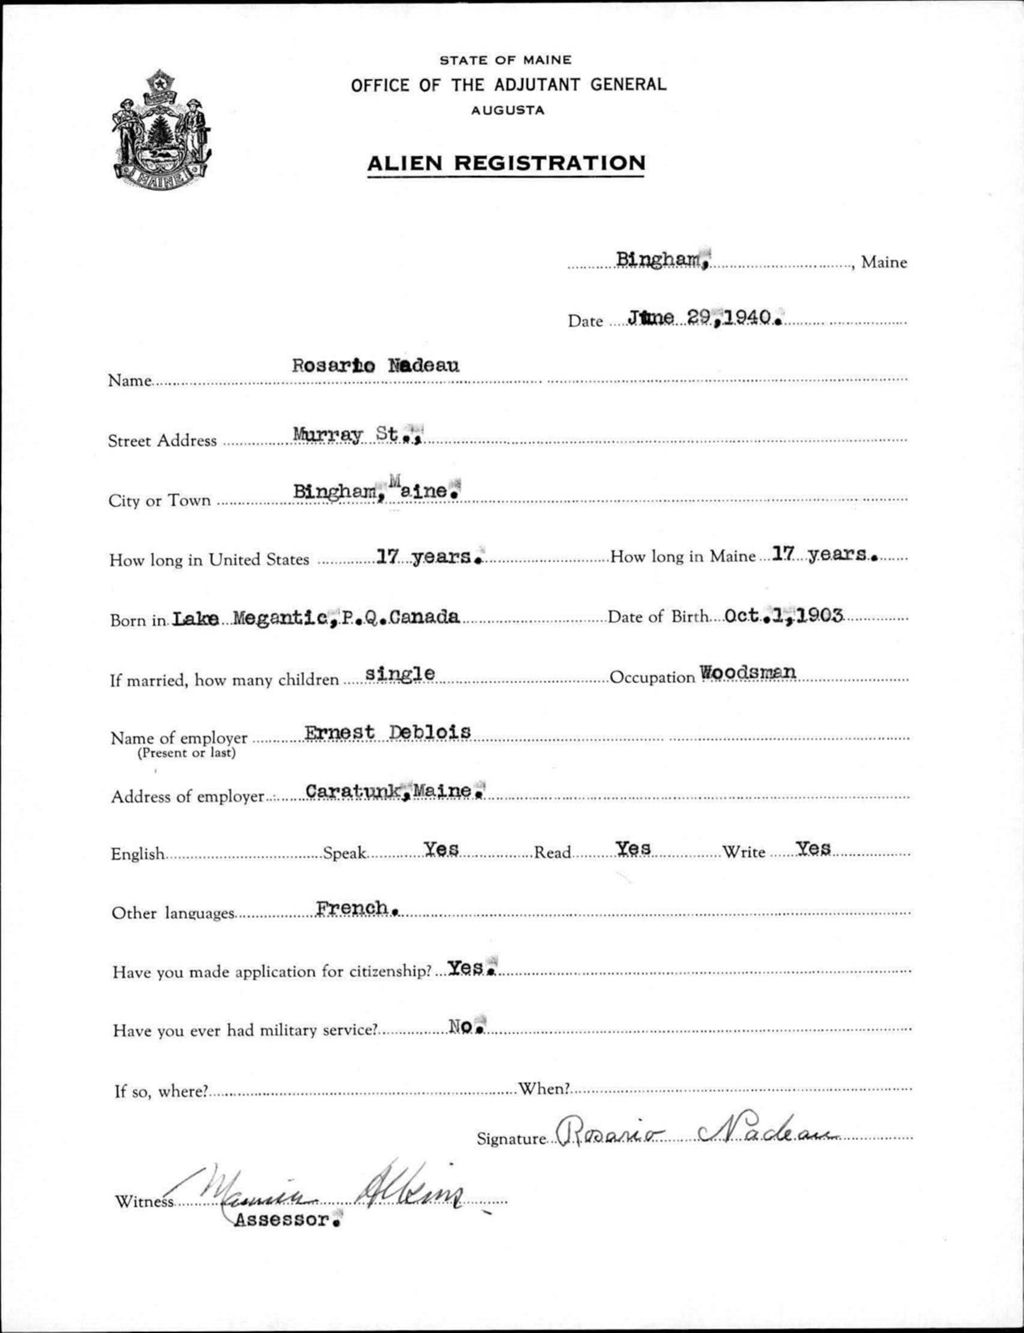 STATE OF MAINE
OFFICE OF THE ADJUTANT GENERAL
AUGUSTA
ALIEN REGISTRATION
MAINE
Bingham, , Maine
Date June 29,1940.
Name Rosario Nadeau
Street Address Murray St.,
City or Town Bingham, Maine.
How long in United States 17 years. How long in Maine 17 years.
Born in Lake Megantic,P.Q.Canada Date of Birth Oct.1,1903
If married, how many children single Occupation Woodsman
Name of employer Ernest Deblois
(Present or last)
Address of employer Caratunk,Maine.
English Speak Yes Read Yes Write Yes
Other languages French.
Have you made application for citizenship? Yes.
Have you ever had military service? No.
If so, where? When?
Signature Rosario Nadeau
Witness
Assessor.